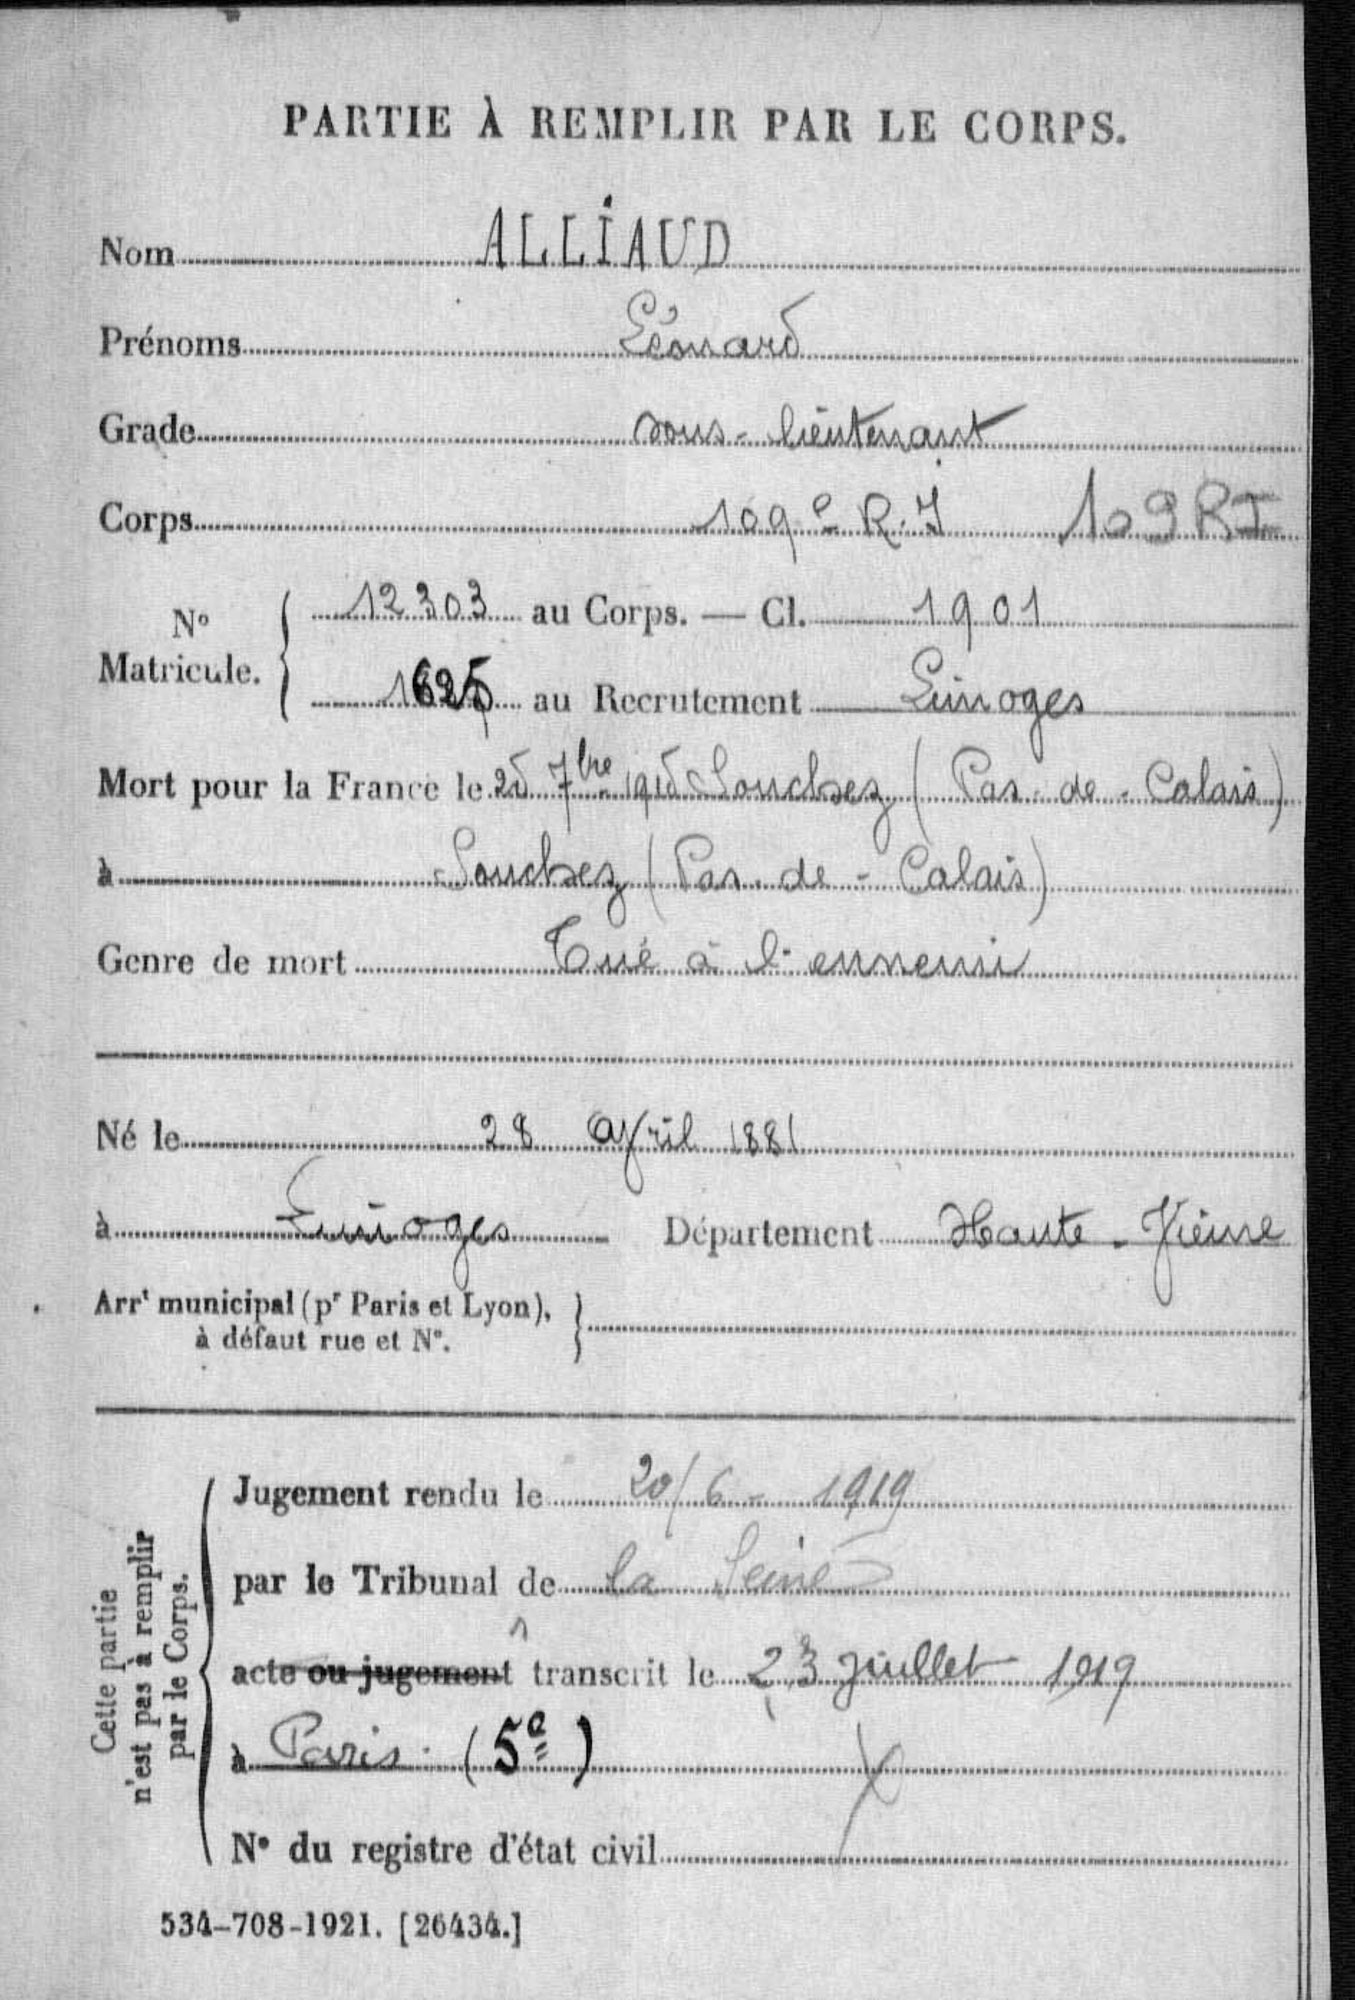 PARTIE À REMPLIR PAR LE CORPS.
Nom ALLIAUD
Prénoms Léonard
Grade sous-lieutenant
Corps 109e R.I 109 RI
N° Matricule. 12303 au Corps. — Cl. 1901
au Recrutement Limoges
Mort pour la France le 25 7bre 1915 Souchez (Pas-de-Calais)
à Souchez (Pas-de-Calais)
Genre de mort Tué à l'ennemi
Né le 28 Avril 1881
à Limoges Département Haute-Vienne
Arrt municipal (pr Paris et Lyon),
à défaut rue et N°.
Cette partie
n'est pas à remplir
par le Corps.
Jugement rendu le 20/6-1919
par le Tribunal de la Seine
acte ou jugement transcrit le 23 juillet 1919
à Paris. (5e)
N° du registre d'état civil
534-708-1921. [26434.]